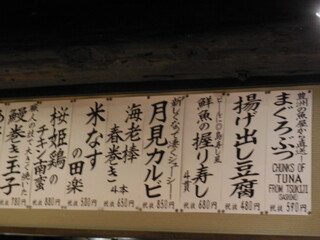 豊洲の魚屋から直送
まぐろぶつ
CHUNKS OF
TUNA
FROM TSUKIJI
税抜 590円
揚げ出し豆腐
税抜 450円
鮮魚の握り寿し
4貫
税抜 680円
新しくなって凄くジューシー
月見カルビ
税抜 850円
海老棒
春巻き
4本
税抜 650円
米なす
の田楽
税抜 580円
桜姫鶏の
チキン南蛮
税抜 880円
職人の技で大きく焼いた
鰻巻き玉子
税抜 780円